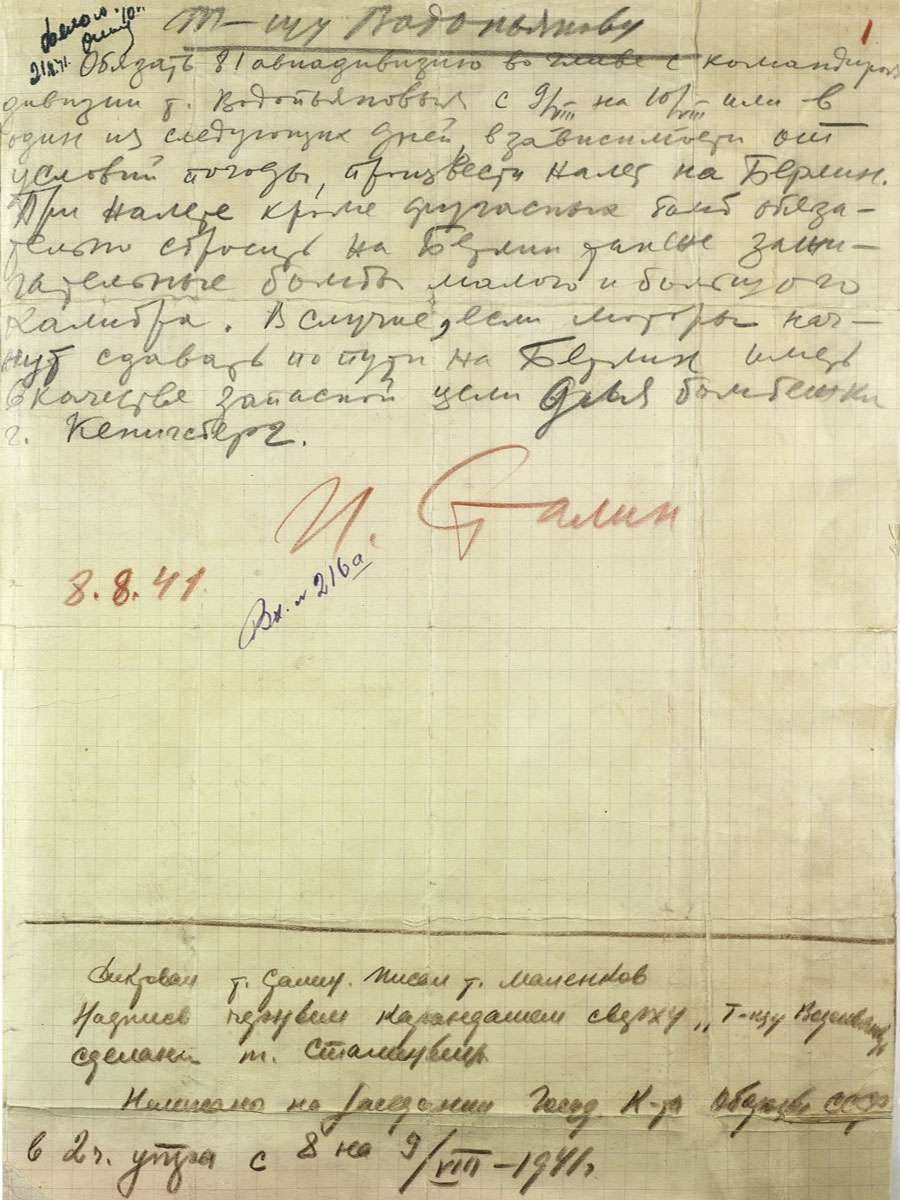 Т-щу Водопьянову
1
Обязать 81 авиадивизию во главе с командиром
дивизии т. Водопьяновым с 9/VIII на 10/VIII или в
один из следующих дней, в зависимости от
условий погоды, произвести налет на Берлин.
При налете кроме фугасных бомб обяза-
тельно сбросить на Берлин также зажи-
гательные бомбы малого и большого
калибра. В случае, если моторы нач-
нут сдавать по пути на Берлин иметь
в качестве запасной цели для бомбежки
г. Кенигсберг.
И. Сталин
8.8.41
Вх. № 216а
Диктовал т. Сталин. Писал т. Маленков
Надпись черным карандашом сверху „Т-щу Водопьянову
сделана т. Сталиным.
Написано на заседании Госуд. К-та Обороны СССР
в 2 ч. утра с 8 на 9/VIII-1941 г.